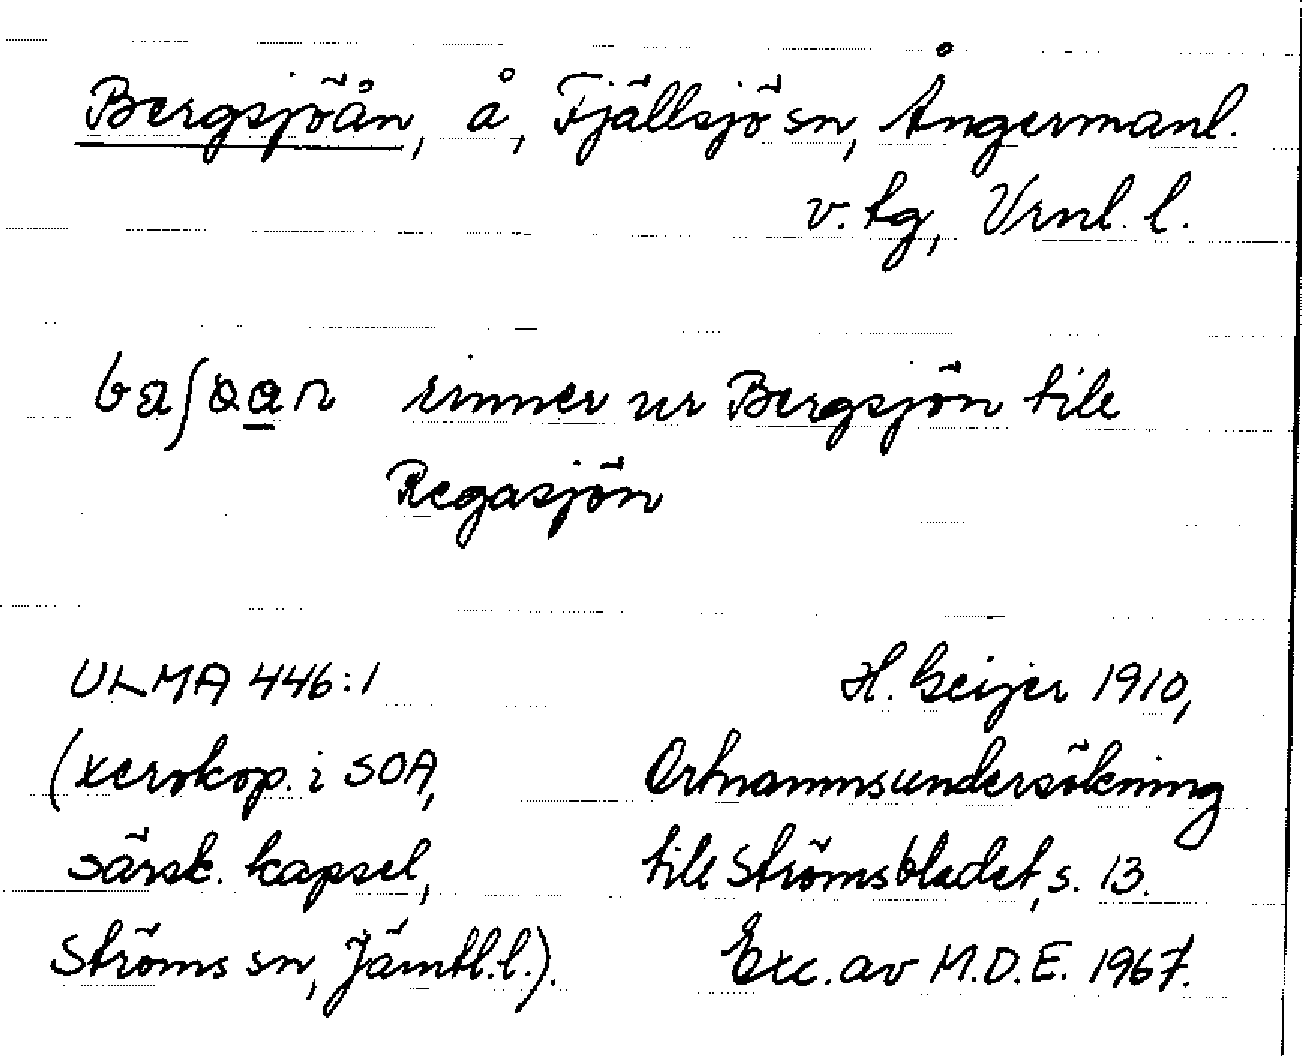 Bergsjöån, å, Fjällsjö sn, Ångermanl.
v. tg, Vrnl. l.
rinner ur Bergsjön till
Regasjön
ULMA 446:1
(xerokop. i SOA,
särsk. kapsel,
Ströms sn, Jämtl.l.).
H. Geijer 1910,
Ortnamnsundersökning
till Strömsbladet, s. 13.
Exc. av M.D.E. 1967.